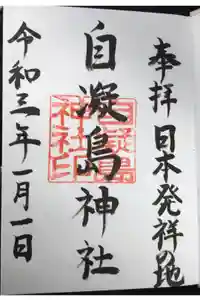 奉拝 日本発祥の地
自凝島神社
自凝島神社印
令和三年一月一日